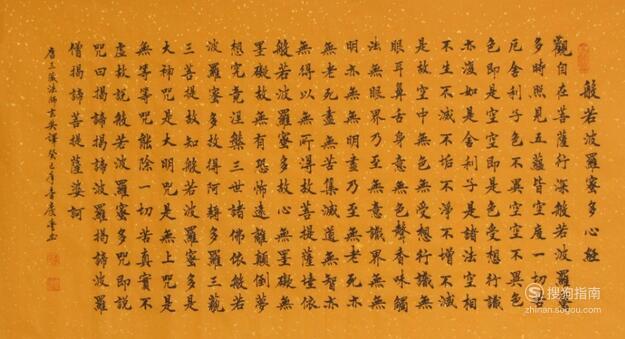 般若波羅蜜多心經
觀自在菩薩行深般若波羅蜜
多時照見五蘊皆空度一切苦
厄舍利子色不異空空不異色
色即是空空即是色受想行識
亦復如是舍利子是諸法空相
不生不滅不垢不淨不增不減
是故空中無色無受想行識無
眼耳鼻舌身意無色聲香味觸
法無眼界乃至無意識界無無
明亦無無明盡乃至無老死亦
無老死盡無苦集滅道無智亦
無得以無所得故菩提薩埵依
般若波羅蜜多故心無罣礙無
罣礙故無有恐怖遠離顛倒夢
想究竟涅槃三世諸佛依般若
波羅蜜多故得阿耨多羅三藐
三菩提故知般若波羅蜜多是
大神咒是大明咒是無上咒是
無等等咒能除一切苦真實不
虛故說般若波羅蜜多咒即說
咒曰揭諦揭諦波羅揭諦波羅
僧揭諦菩提薩婆訶
唐三藏法師玄奘譯癸巳年春
搜狗指南
zhinan.sogou.com